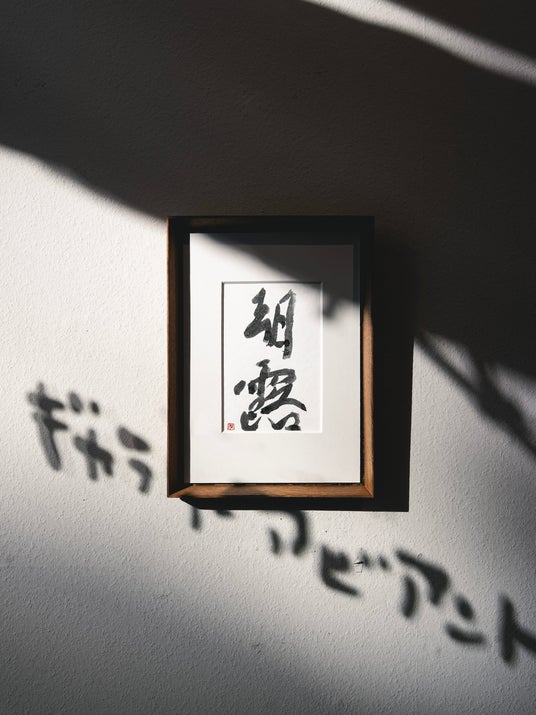 朝露
ギャラ ビアント